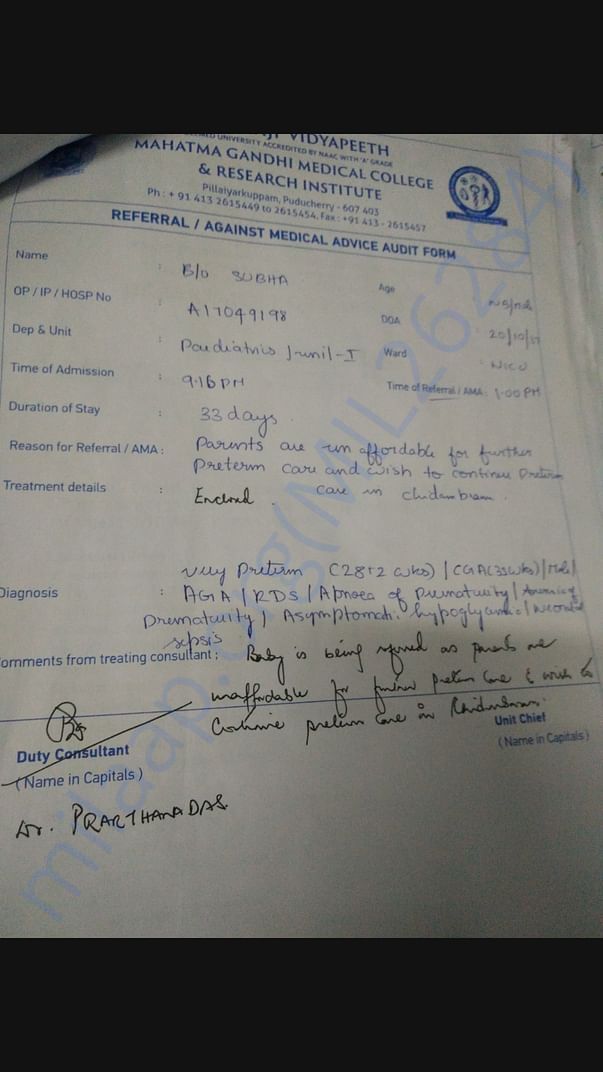 VIDYAPEETH
UNIVERSITY ACCREDITED BY NAAC WITH 'A' GRADE
MAHATMA GANDHI MEDICAL COLLEGE
& RESEARCH INSTITUTE
Pillaiyarkuppam, Puducherry - 607 403
Ph : + 91 413 2615449 to 2615454, Fax : +91 413 - 2615457
REFERRAL / AGAINST MEDICAL ADVICE AUDIT FORM
Name : B/o SUBHA Age
OP / IP / HOSP No : A17049198 DOA 20/10/17
Dep & Unit : Paediatrics Unit-I Ward : NICU
Time of Admission : 9.16 PM Time of Referral / AMA : 1.00 PM
Duration of Stay : 33 days.
Reason for Referral / AMA : Parents are un affordable for further
preterm care and wish to continue preterm
care in chidambram.
Treatment details : Enclosed.
Very Preterm (28+2 wks) | CGA (33 wks) | Male |
Diagnosis : AGA | RDS | Apnoea of Prematurity | Anemia of
Prematurity | Asymptomatic hypoglycemia | neonatal
sepsis
Comments from treating consultant : Baby is being referred as parents are
unaffordable for further preterm care & wish to
Continue preterm care in Chidambaram.
Duty Consultant Unit Chief
(Name in Capitals) (Name in Capitals)
Dr. PRARTHANA DAS
milaap.org(MIL262284)